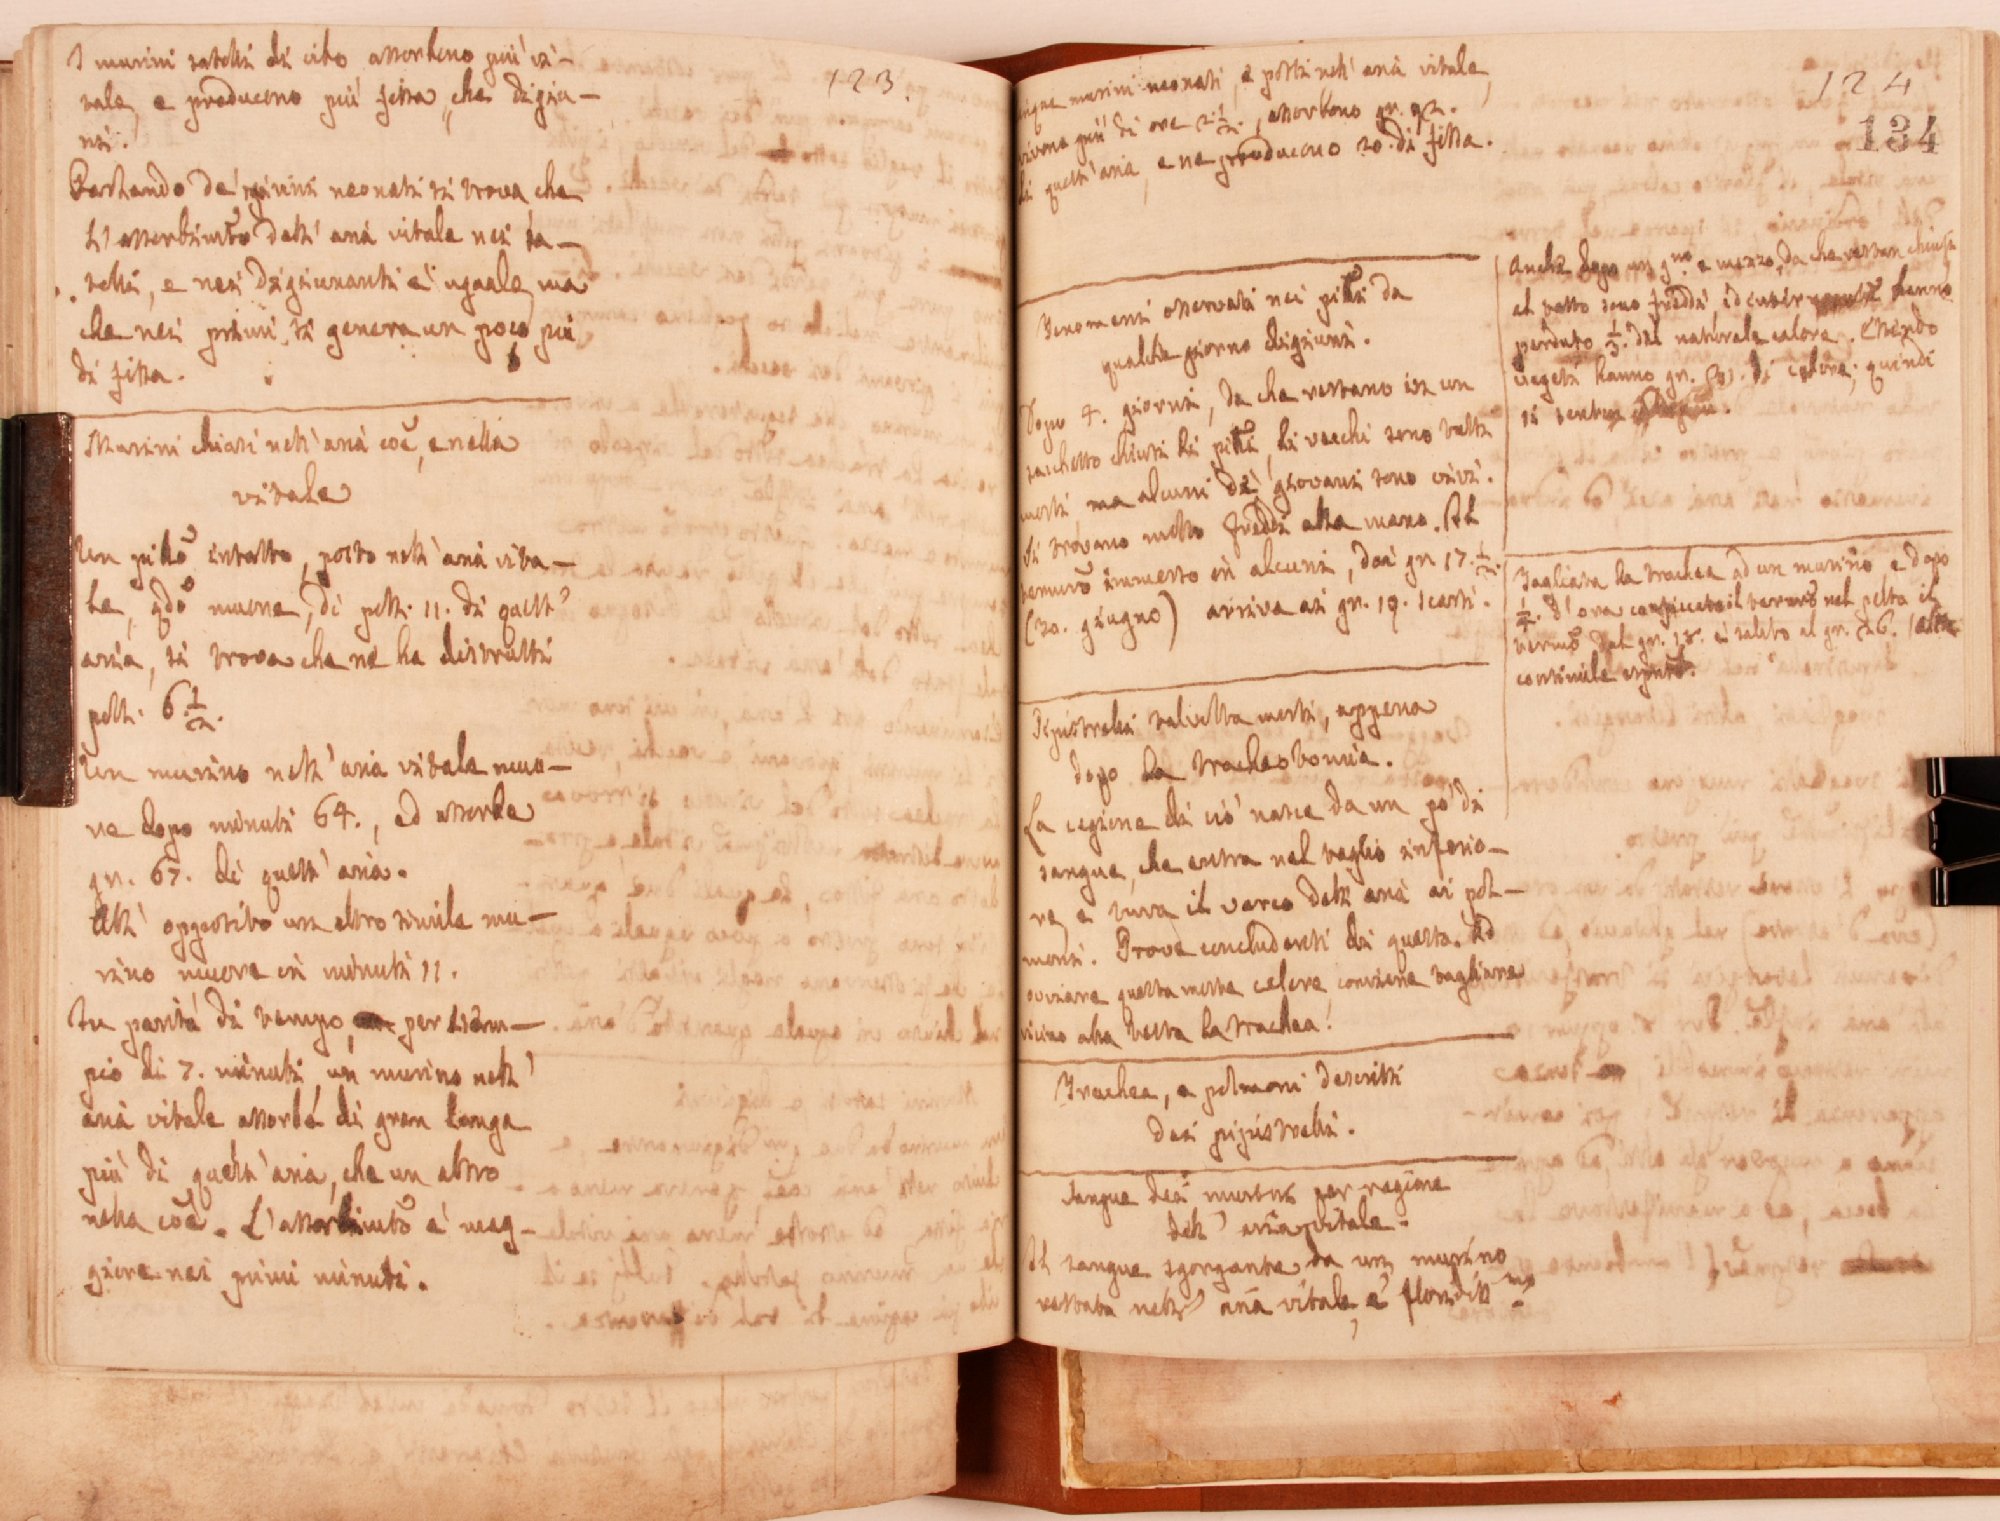 123.
I murini satolli di cibo assorbono più vi-
tale, e producono più fissa, che digiu-
ni.
Parlando de' murini neonati si trova che
l'assorbimto dell' aria vitale nei sa-
tolli, e nei digiunanti è uguale, ma
che nei primi si genera un poco più
di fissa.
Murini chiusi nell' aria coe, e nella
vitale
Un pillo intatto, posto nell' aria vita-
le, qdo muore, di poll. 11. di quest'
aria, si trova che ne ha distrutti
poll. 6 1/2.
Un murino nell' aria vitale muo-
re dopo minuti 64., ed assorbe
gr. 67. di quest' aria.
All' opposito un altro simile mu-
rino muore in minuti 11.
In parità di tempo, per esem-
pio di 7. minuti, un murino nell'
aria vitale assorbe di gran longa
più di quest' aria, che un altro
nella coe. L'assorbimto è mag-
giore nei primi minuti.
124
134
murini neonati, e posti nell' aria vitale,
vivono più di ore 2 1/2., assorbono gr. 92.
di quest' aria, e ne producono 20. di fissa.
Fenomeni osservati nei pilli da
qualche giorno digiuni.
Dopo 4. giorni, da che restano in un
sacchetto chiusi li pilli, li vecchi sono tutti
morti ma alcuni de' giovani sono vivi.
Si trovano molto freddi alla mano. Il
termuro immerso in alcuni, dai gr. 17. 1/2.
(20. giugno) arriva ai gr. 19. scarsi.
Pipistrelli talvolta morti, appena
dopo la tracheotomia.
La cagione di ciò nasce da un po' di
sangue, che entra nel taglio inferio-
re, e tura il varco dell' aria ai pol-
moni. Prove concludenti di questo. Ad
ovviare questa morte celere conviene tagliare
vicino alla testa la trachea.
Trachea, e polmoni descritti
dei pipistrelli.
Sangue dei murini per ragione
dell' aria vitale.
Il sangue sgorgante da un murino
restato nell' aria vitale, è floridissmo
Anche dopo un gno e mezzo, da che restan chiusi
al tatto sono freddi, ed hanno
perduto 1/3. del naturale calore. Essendo
vegeti hanno gr. di calore; quindi
si
Tagliata la trachea ad un murino e dopo
1/4. d'ora conficcato il termro nel petto il
termro dal gr. 18. è salito al gr. 26.
consimile espmto.